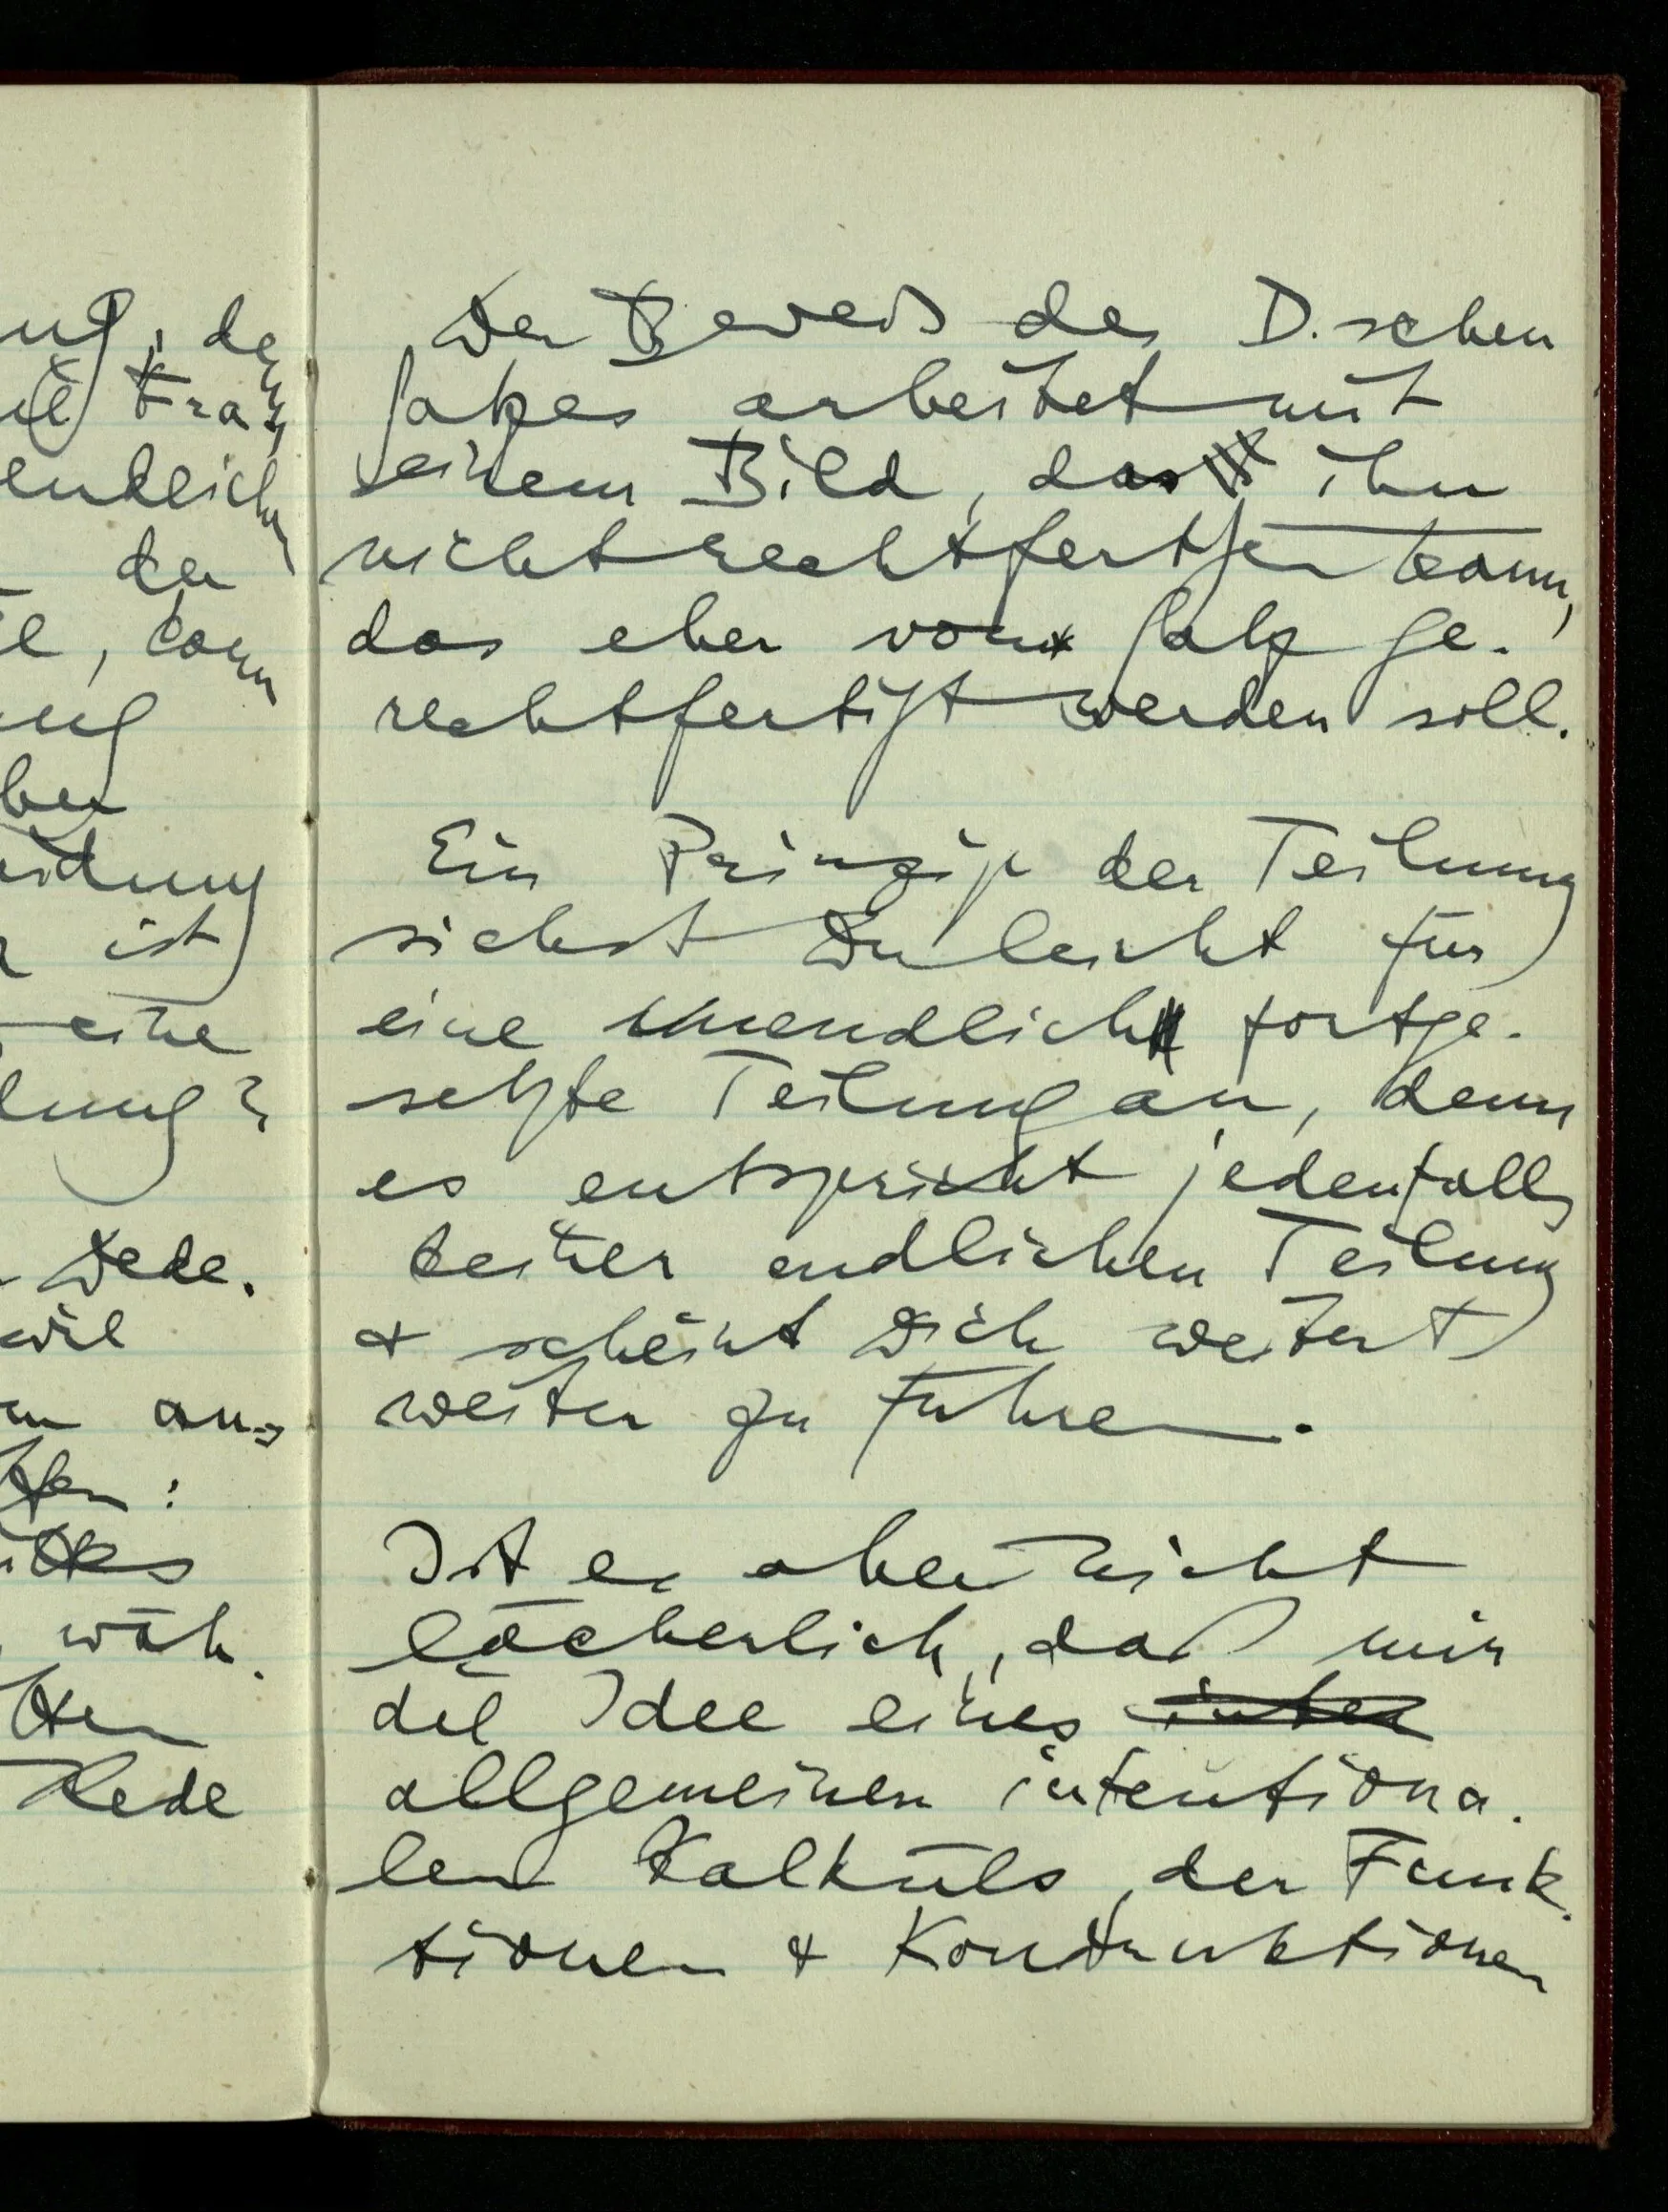 ung, der
die Fra-
endlichen
der
e, kann
ung
ber
eidung
ist
eine
dung?
Dede.
wie
an-
:
wäh.
Rede
Der Beweis des D.schen
Satzes arbeitet mit
einem Bild, das ihn
nicht rechtfertigen kann,
das eher vom Satz ge.
rechtfertigt werden soll.
Ein Prinzip der Teilung
siehst Du leicht für
eine unendlich fortge.
setzte Teilung an, denn
es entspricht jedenfalls
keiner endlichen Teilung
& scheint Dich weiter &
weiter zu führen.
Ist es aber nicht
lächerlich, daß wir
die Idee eines
allgemeinen intentiona.
len Kalküls, der Funk.
tionen & Konstruktionen